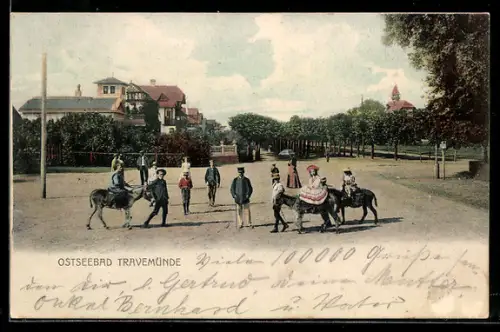 OSTSEEBAD TRAVEMÜNDE
Viele 100000 Grüße
den Dir, l. Gertrud, Deine Mutter
Onkel Bernhard u. Vater